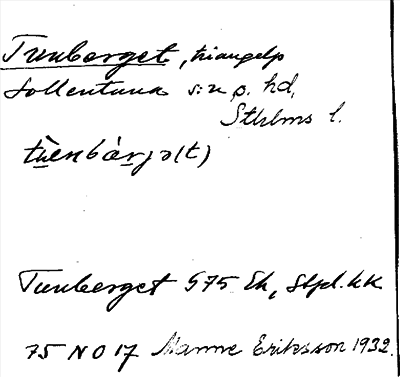 Tunberget, triangelp
Sollentuna s:n o. hd,
Sthlms l.
tùenbàrjə(t)
Tunberget G75 Ek, Stpl. kk
75 NO 17 Manne Eriksson 1932.